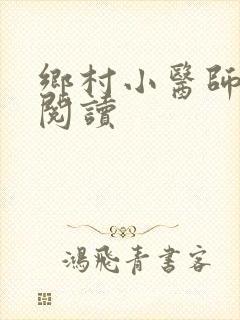 鄉村小醫師
閱讀
鴻飛青書客